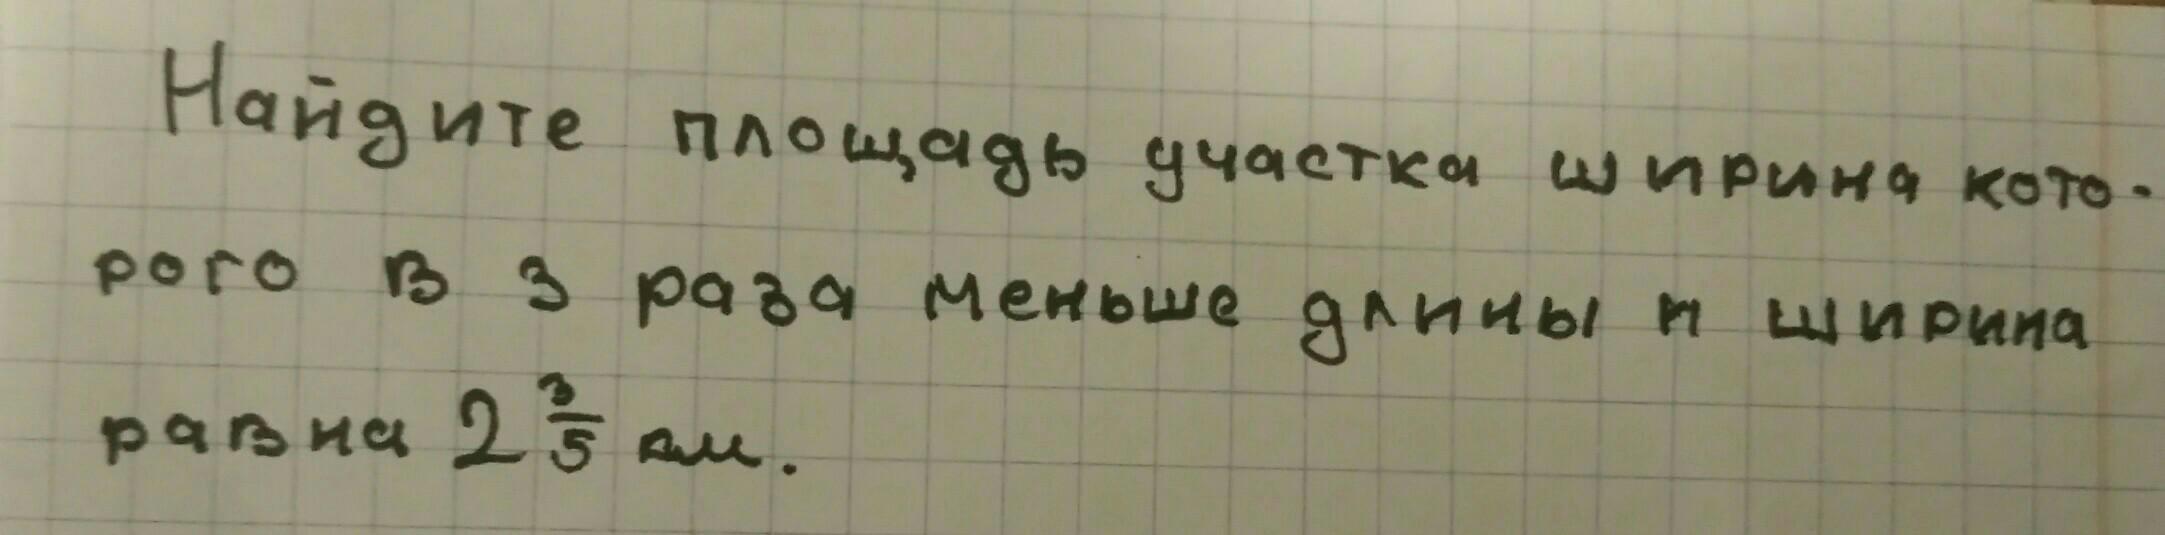 Найдите площадь участка ширина кото-
рого в 3 раза меньше длины и ширина
равна 2 3/5 км.